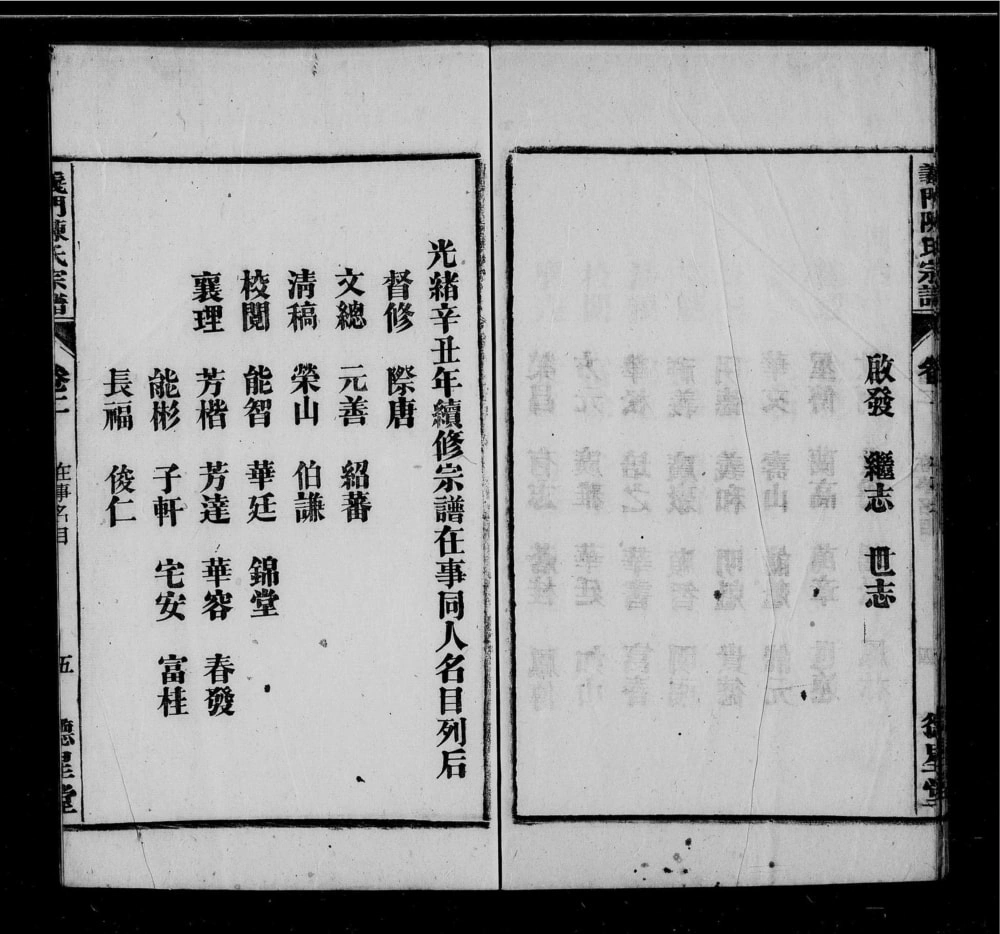 義門陳氏宗譜
啟發 繼志 世志
德星堂
光緒辛丑年續修宗譜在事同人名目列后
督修 際唐
文總 元善 紹蕃
清稿 榮山 伯謙
校閱 能智 華廷 錦堂
襄理 芳楷 芳達 華容 春發
能彬 子軒 宅安 富桂
長福 俊仁
義門陳氏宗譜 卷二 在事名目 五 德星堂